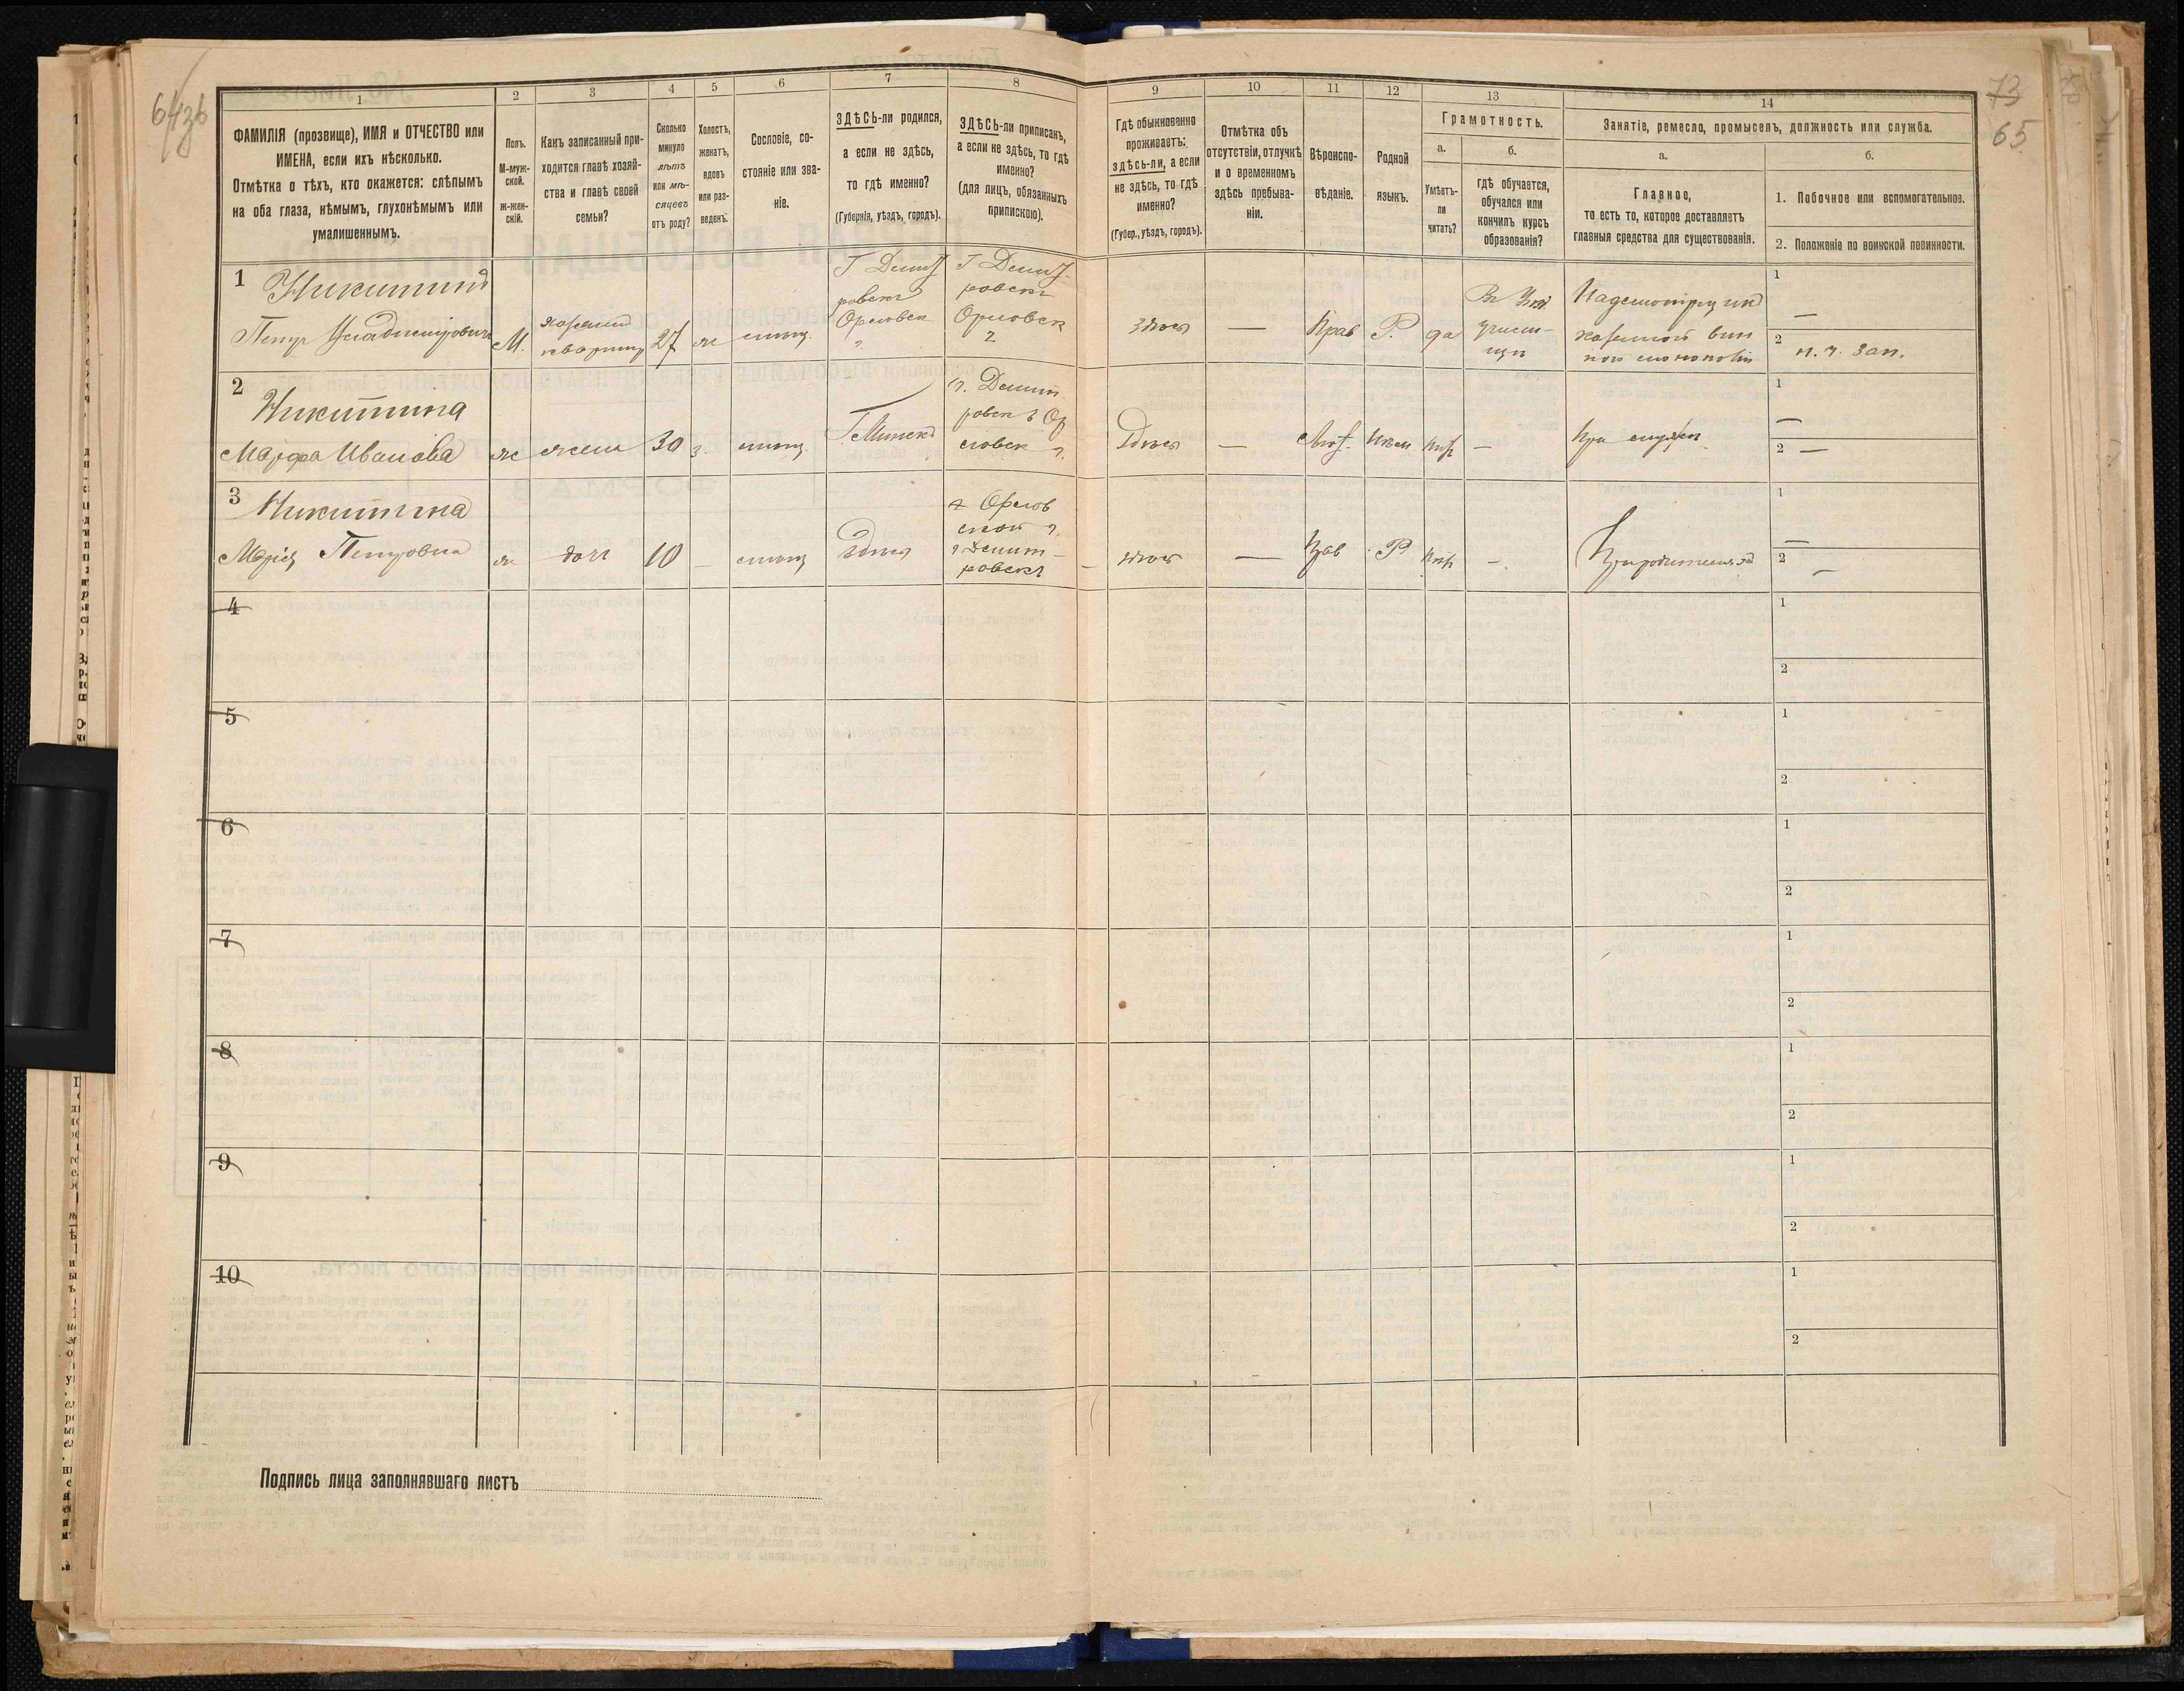 643б
73
65
1
2
3
4
5
6
7
8
9
10
11
12
13
14
ФАМИЛІЯ (прозвище), ИМЯ и ОТЧЕСТВО или
ИМЕНА, если ихъ нѣсколько.
Отмѣтка о тѣхъ, кто окажется: слѣпымъ
на оба глаза, нѣмымъ, глухонѣмымъ или
умалишеннымъ.
Полъ.
М-муж-
ской.
ж-жен-
скій.
Какъ записанный при-
ходится главѣ хозяй-
ства и главѣ своей
семьи?
Сколько
минуло
лѣтъ
или мѣ-
сяцевъ
отъ роду?
Холостъ,
женатъ,
вдовъ
или раз-
веденъ.
Сословіе, со-
стояніе или зва-
ніе.
ЗДѢСЬ-ли родился,
а если не здѣсь,
то гдѣ именно?
(Губернія, уѣздъ, городъ).
ЗДѢСЬ-ли приписанъ,
а если не здѣсь, то гдѣ
именно?
(для лицъ, обязанныхъ
припискою).
Гдѣ обыкновенно
проживаетъ:
здѣсь-ли, а если
не здѣсь, то гдѣ
именно?
(Губер., уѣздъ, городъ).
Отмѣтка объ
отсутствіи, отлучкѣ
и о временномъ
здѣсь пребыва-
ніи.
Вѣроиспо-
вѣданіе.
Родной
языкъ.
Грамотность.
а.
б.
Умѣетъ-
ли
читать?
гдѣ обучается,
обучался или
кончилъ курсъ
образованія?
Занятіе, ремесло, промыселъ, должность или служба.
а.
б.
Главное,
то есть то, которое доставляетъ
главныя средства для существованія.
1. Побочное или вспомогательное.
2. Положеніе по воинской повинности.
1
Никитинъ
Петръ Владиміровичъ
М.
хозяинъ
квартиры
27
ж
мѣщ.
Г Дмит
ровскъ
Орловск
г.
Г Дмит-
ровскъ
Орловск
г
здѣсь
—
Прав
Р.
да
Въ Уѣз.
учили-
щѣ
Надсмотрщикъ
казенной вин
ной монополіи
1
—
2 н. ч. зап.
2
Никитина
Марфа Иванова
ж
жена
30
з.
мѣщ.
Г. Минскъ
г. Дмит
ровскъ Ор
ловск г.
Здѣсь
—
Лют.
Нѣм.
нѣт
—
При мужѣ
1
—
2 —
3
Никитина
Марія Петровна
ж
доч
10
—
мѣщ
Здѣсь
Орлов
ской г.
г Дмит-
ровскъ
здѣсь
—
Прав
Р
нѣт
—
При родителяхъ
1
—
2
—
4
1
2
5
1
2
6
1
2
7
1
2
8
1
2
9
1
2
10
1
2
Подпись лица заполнявшаго листъ